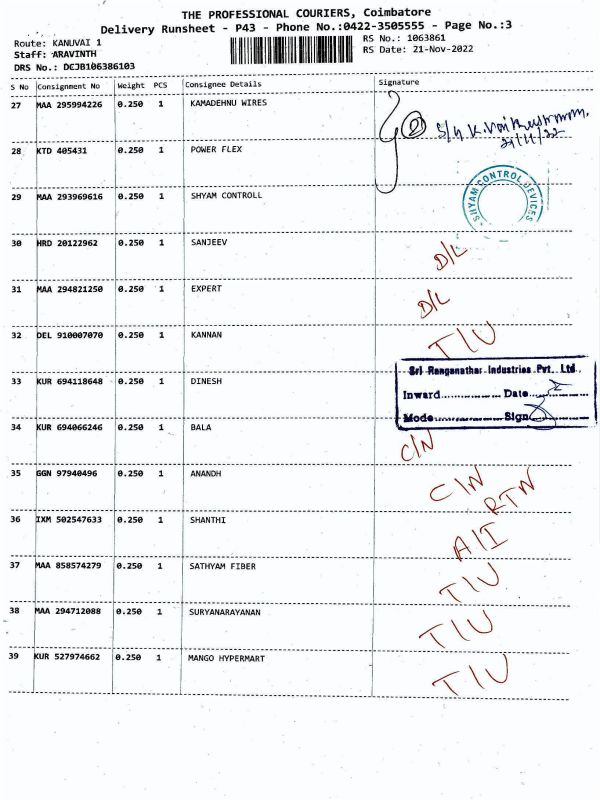 THE PROFESSIONAL COURIERS, Coimbatore
Delivery Runsheet - P43 - Phone No.:0422-3505555 - Page No.:3
Route: KANUVAI 1
RS No.: 1063861
Staff: ARAVINTH
RS Date: 21-Nov-2022
DRS No.: DCJB106386103
S No Consignment No Weight PCS Consignee Details Signature
27 MAA 295994226 0.250 1 KAMADEHNU WIRES
21/11/22
28 KTD 405431 0.250 1 POWER FLEX
29 MAA 293969616 0.250 1 SHYAM CONTROLL
SHYAM CONTROL DEVICES
30 HRD 20122962 0.250 1 SANJEEV D/L
31 MAA 294821250 0.250 1 EXPERT D/L
32 DEL 910007070 0.250 1 KANNAN T/U
Sri Ranganathar Industries Pvt. Ltd.
33 KUR 694118648 0.250 1 DINESH
Inward.................. Date..................
Mode.................. Sign..................
34 KUR 694066246 0.250 1 BALA C/N
35 GGN 97940496 0.250 1 ANANDH C/N
RTN
36 IXM 502547633 0.250 1 SHANTHI A/I
37 MAA 858574279 0.250 1 SATHYAM FIBER T/U
38 MAA 294712088 0.250 1 SURYANARAYANAN T/U
39 KUR 527974662 0.250 1 MANGO HYPERMART T/U